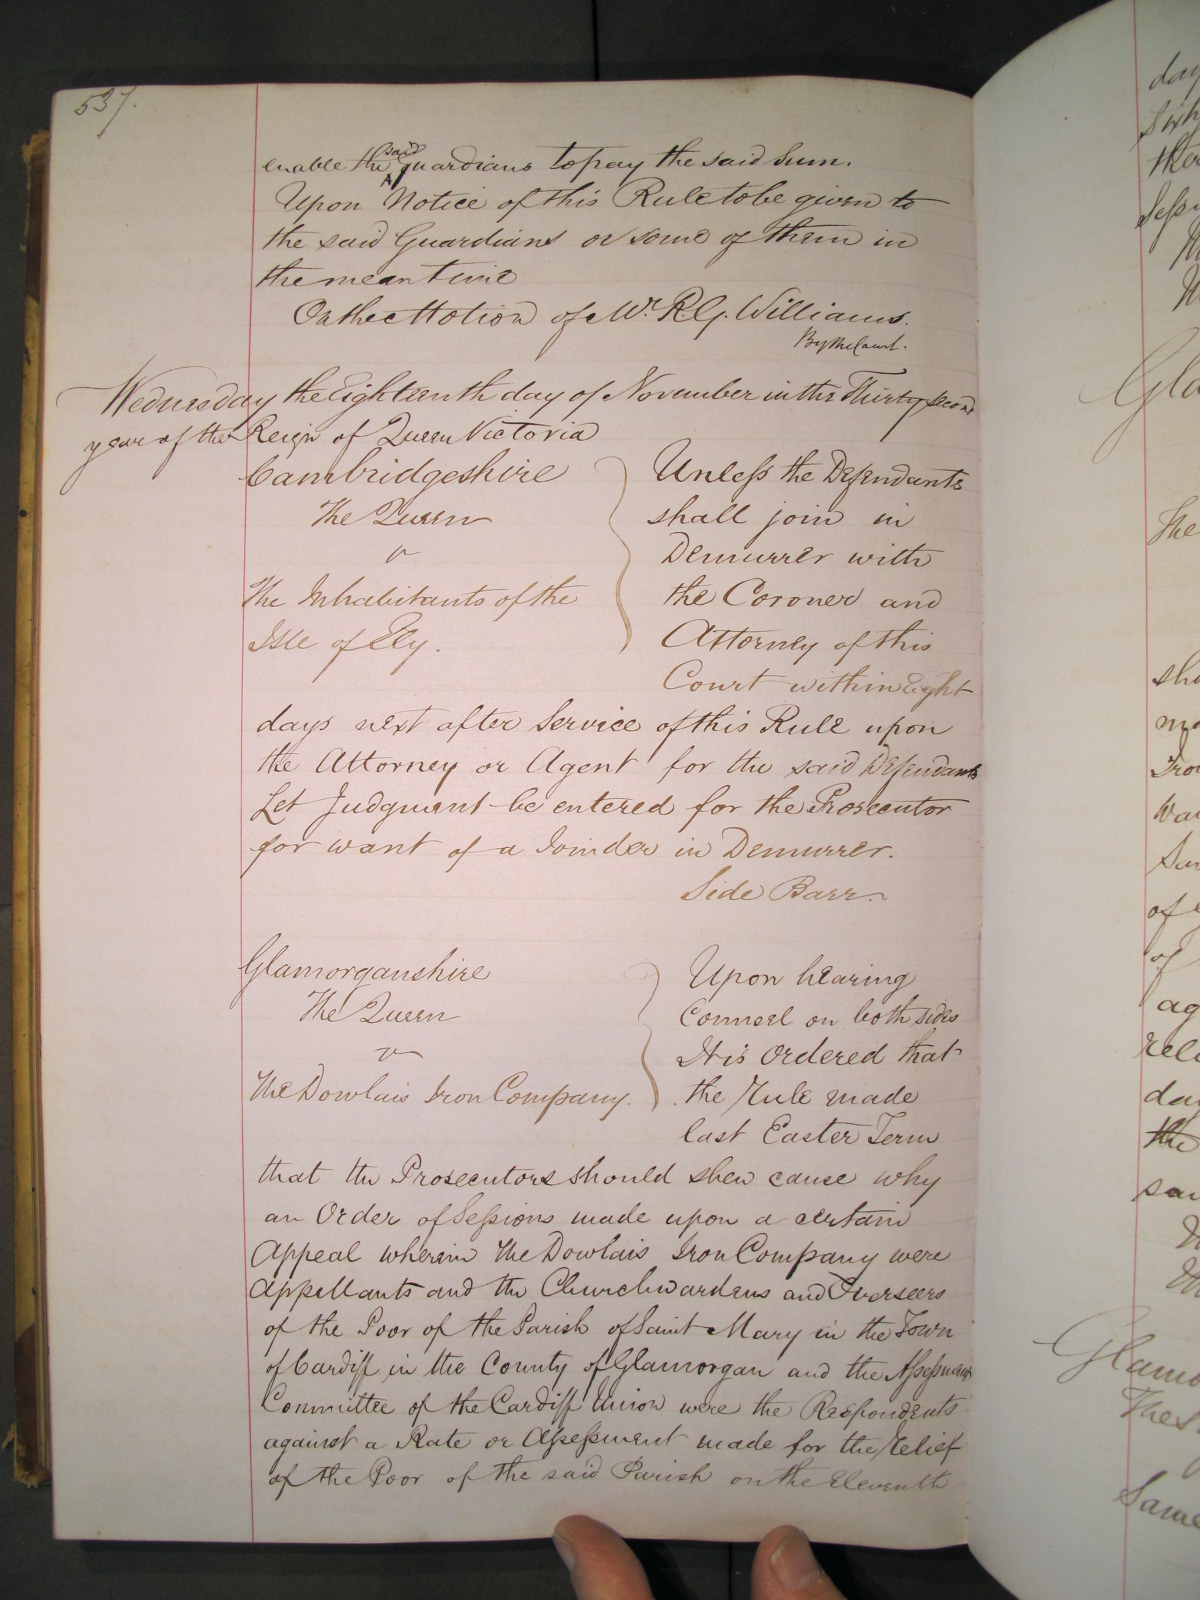 537.
enable the said guardians to pay the said Sum.
Upon Notice of this Rule to be given to
the said Guardians or some of them in
the mean time
On the Motion of Mr. R.G. Williams.
By the Court.
Wednesday the Eighteenth day of November in the Thirty second
year of the Reign of Queen Victoria
Cambridgeshire
The Queen
v
The Inhabitants of the
Isle of Ely.
Unless the Defendants
shall join in
Demurrer with
the Coroner and
Attorney of this
Court within Eight
days next after Service of this Rule upon
the Attorney or Agent for the said Defendants
Let Judgment be entered for the Prosecutor
for want of a Joinder in Demurrer.
Side Barr.
Glamorganshire
The Queen
v
The Dowlais Iron Company.
Upon hearing
Counsel on both sides
It is Ordered that
the Rule made
last Easter Term
that the Prosecutors should shew cause why
an Order of Sessions made upon a certain
Appeal wherein The Dowlais Iron Company were
Appellants and the Churchwardens and Overseers
of the Poor of the Parish of Saint Mary in the Town
of Cardiff in the County of Glamorgan and the Assessment
Committee of the Cardiff Union were the Respondents
against a Rate or Assessment made for the Relief
of the Poor of the said Parish on the Eleventh